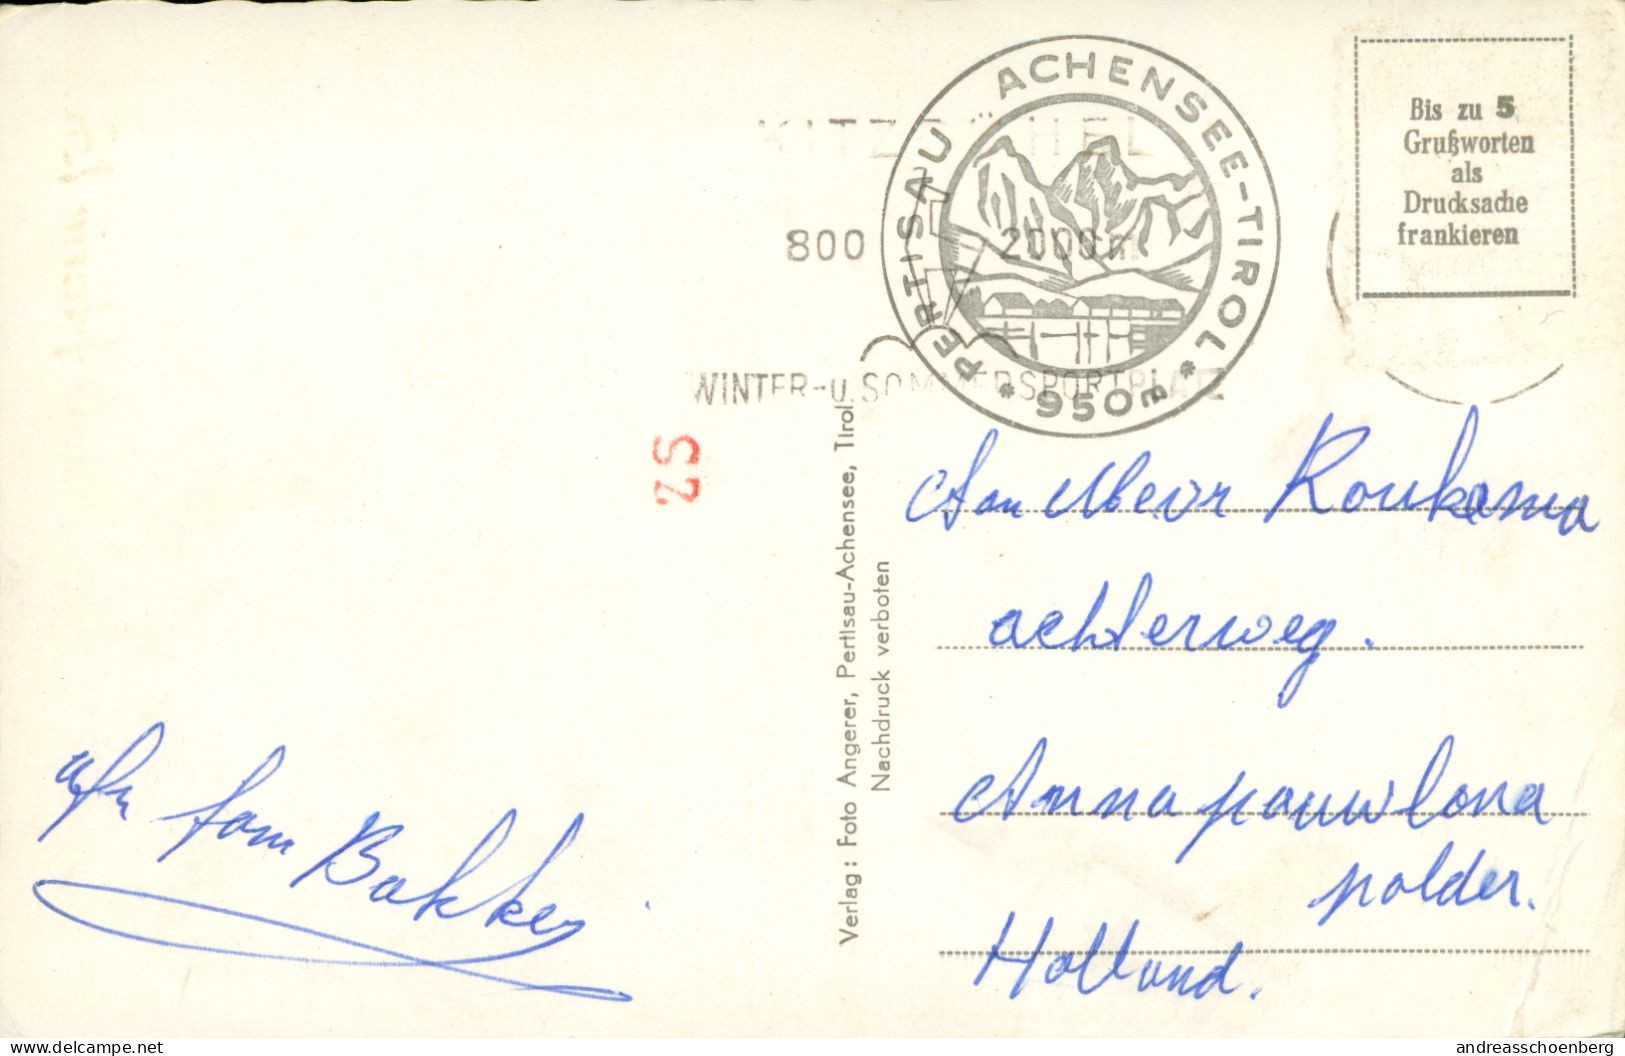 KITZBÜHEL
800
2000 m
WINTER- u. SOMMERSPORTPLATZ
PERTISAU ACHENSEE-TIROL * 950m *
Bis zu 5
Grußworten
als
Drucksache
frankieren
25
Verlag: Foto Angerer, Pertisau-Achensee, Tirol
Nachdruck verboten
Aan Mevr Roukema
achterweg.
Annapauwlona
polder.
Holland.
afz fam Bakker
delcampe.net
andreasschoenberg